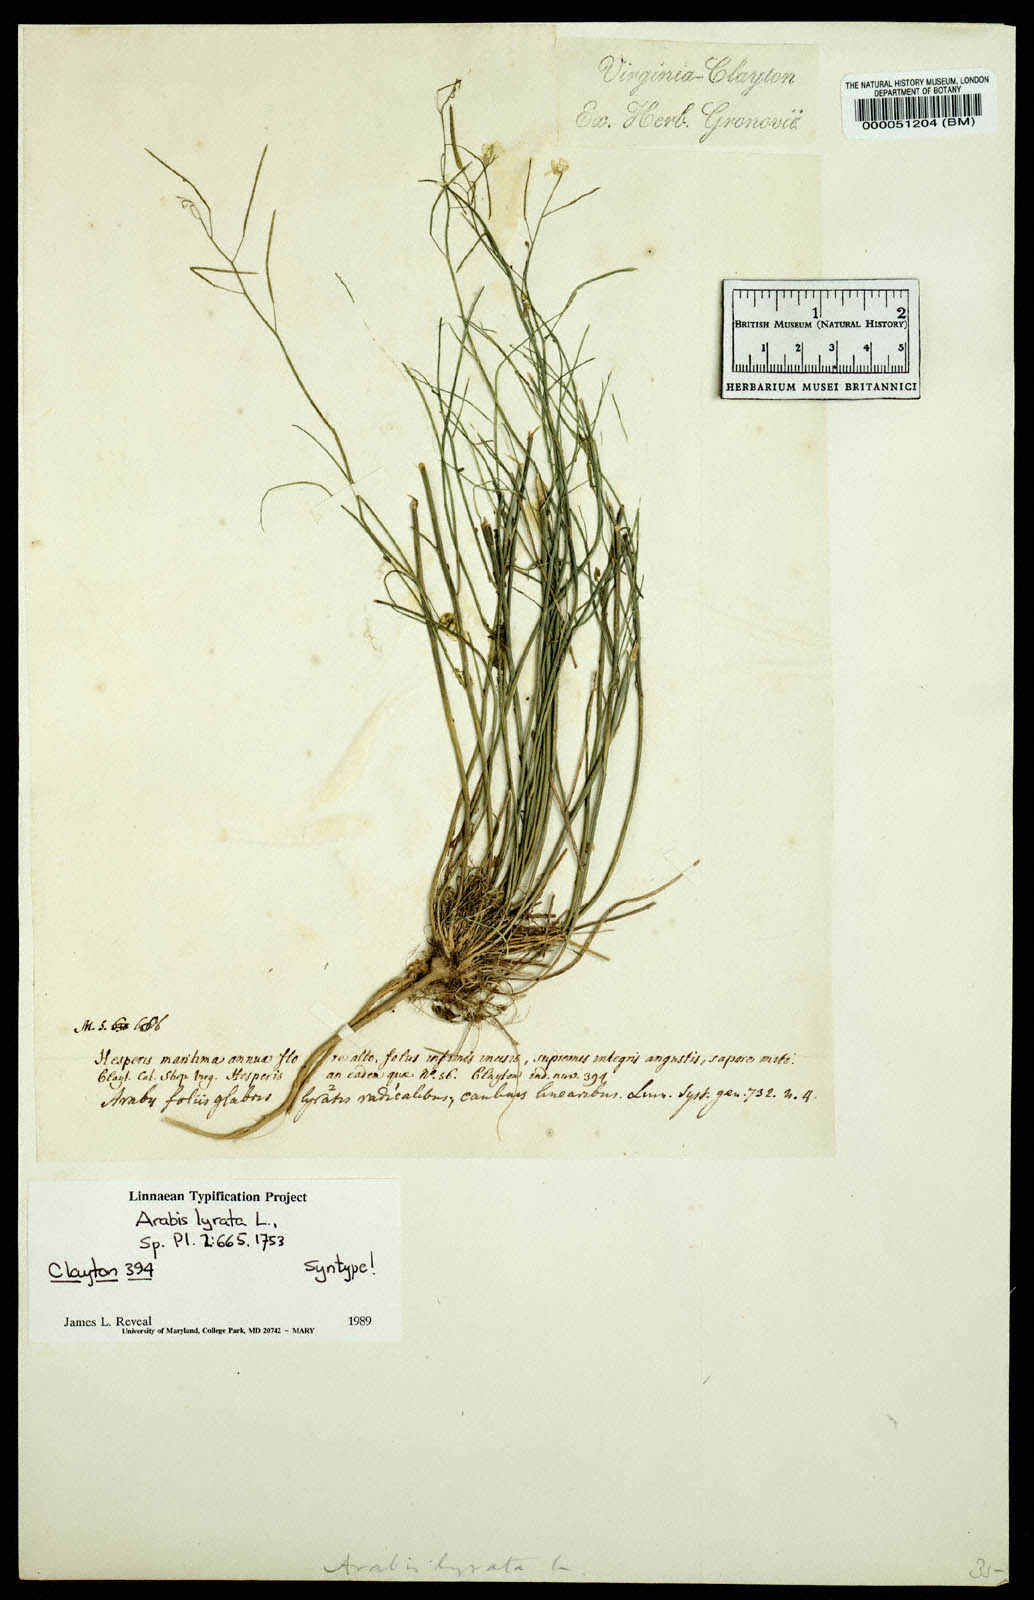 Virginia-Clayton
Ex. Herb. Gronovii
THE NATURAL HISTORY MUSEUM, LONDON
DEPARTMENT OF BOTANY
000051204 (BM)
1 2
BRITISH MUSEUM (NATURAL HISTORY)
1 2 3 4 5
HERBARIUM MUSEI BRITANNICI
M. 5. 686
Hesperis maritima annua flore albo, foliis infimis incisis, supremis integris angustis, sapore
Clayt. Cat. Stirp. Virg. Hesperis an eadem quae No. 56. Clayton ind. num. 394
Arabis foliis glabris lyratis radicalibus, caulinis linearibus. Linn. Syst. gen. 732. n. 4.
Linnaean Typification Project
Arabis lyrata L.,
Sp. Pl. 2:665. 1753
Clayton 394 Syntype!
James L. Reveal 1989
University of Maryland, College Park, MD 20742 – MARY
Arabis lyrata L.
35-